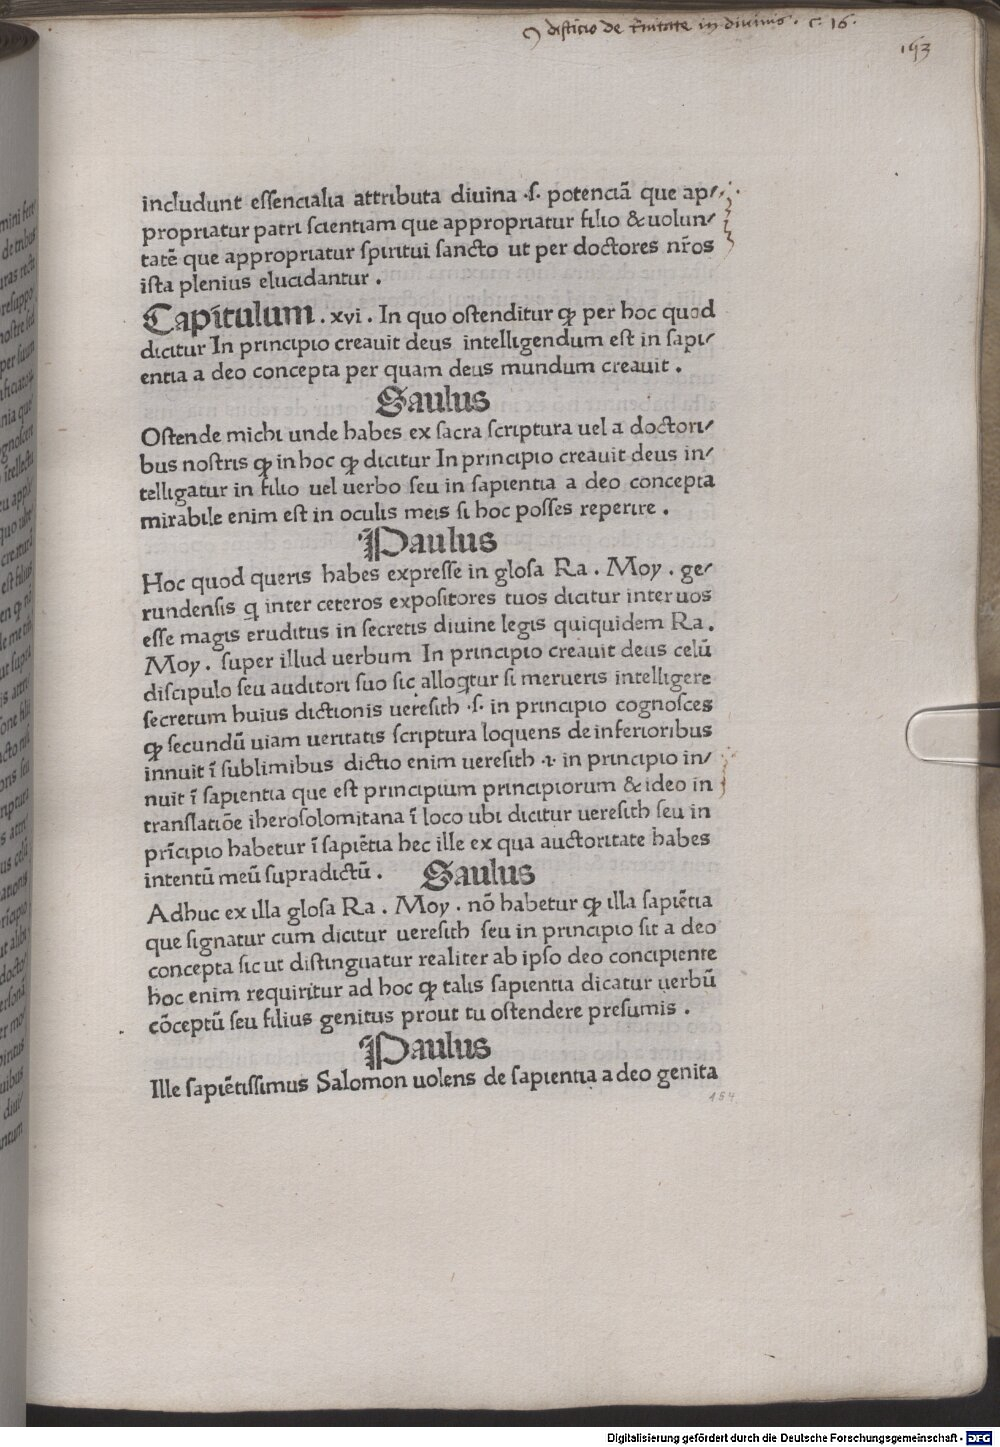 disticio de trinitate in divinis . c. 16.
153
includunt essencialia attributa diuina .s. potenciã que ap/
propriatur patri scientiam que appropriatur filio & uolun/
tatẽ que appropriatur spiritui sancto ut per doctores nr̃os
ista plenius elucidantur .
Capitulum . xvi . In quo ostenditur ꝙ per hoc quod
dicitur In principio creauit deus intelligendum est in sapi/
entia a deo concepta per quam deus mundum creauit .
Saulus
Ostende michi unde habes ex sacra scriptura uel a doctori/
bus nostris ꝙ in hoc ꝙ dicitur In principio creauit deus in/
telligatur in filio uel uerbo seu in sapientia a deo concepta
mirabile enim est in oculis meis si hoc posses reperire .
Paulus
Hoc quod queris habes expresse in glosa Ra . Moy . ge/
rundensis q inter ceteros expositores tuos dicitur inter uos
esse magis eruditus in secretis diuine legis quiquidem Ra .
Moy . super illud uerbum In principio creauit deus celũ
discipulo seu auditori suo sic alloq̃tur si merueris intelligere
secretum huius dictionis ueresith .s. in principio cognosces
ꝙ secundũ uiam ueritatis scriptura loquens de inferioribus
innuit ĩ sublimibus dictio enim ueresith .i. in principio in/
nuit ĩ sapientia que est principium principiorum & ideo in
translatiõe iherosolomitana ĩ loco ubi dicitur ueresith seu in
prĩcipio habetur ĩ sapiẽtia hec ille ex qua auctoritate habes
intentũ meũ supradictũ .
Saulus
Adhuc ex illa glosa Ra . Moy . nõ habetur ꝙ illa sapiẽtia
que signatur cum dicitur ueresith seu in principio sit a deo
concepta sic ut distinguatur realiter ab ipso deo concipiente
hoc enim requiritur ad hoc ꝙ talis sapientia dicatur uerbũ
cõceptũ seu filius genitus prout tu ostendere presumis .
Paulus
Ille sapiẽtissimus Salomon uolens de sapientia a deo genita
154
Digitalisierung gefördert durch die Deutsche Forschungsgemeinschaft - DFG